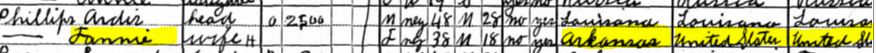 Phillips Ardis head O 2500 M neg 48 M 28 no yes Louisiana Louisiana Louisi
— Fannie wife H F ng 38 M 18 no yes Arkansas United States United States